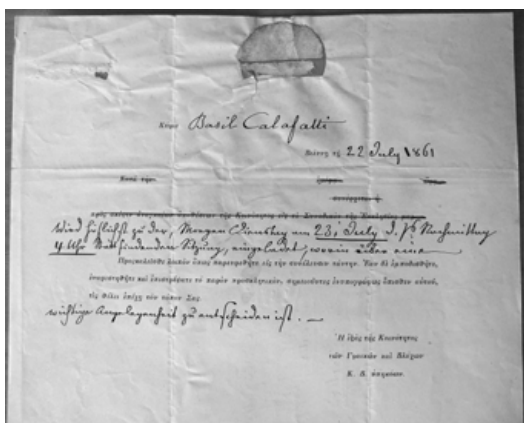 Κύριε Basil Calafatti
Βιέννη τῇ 22 July 1861
Κατὰ τὴν ἡμέραν ὥραν
συνέρχεται ἡ
πρὸς τῆς Κοινότητος εἰς τὸ
wird höflichst zu der, Morgen Dienstag am 23. July d. Js. Nachmittag
4 Uhr Statt findenden Sitzung, eingeladet, worin über eine
Προσκαλεῖσθε λοιπὸν ὅπως παρευρεθῆτε εἰς τὴν συνέλευσιν ταύτην. Ἐὰν δὲ ἐμποδισθῆτε,
εὐαρεστηθῆτε νὰ ἐπιστρέψητε τὸ παρὸν προσκλητικόν, σημειοῦντες ὄπισθεν αὐτοῦ,
τίς θέλει ἐπέχῃ τὸν τόπον Σας.
wichtige Angelegenheit zu entscheiden ist. —
Ἡ τῆς Κοινότητος
τῶν Γραικῶν καὶ Βλάχων
Κ. Β. ὑπηκόων.